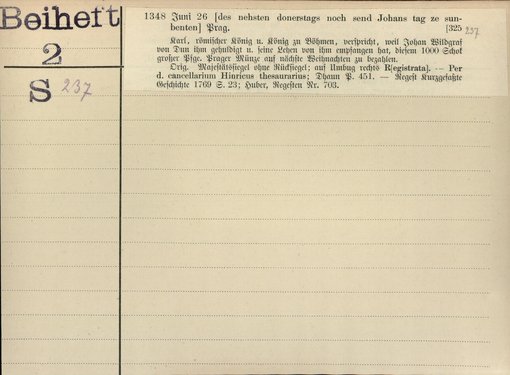 Beiheft
2
S 237
1348 Juni 26 [des nehsten donerstags noch send Johans tag ze sun-
benten] Prag. [325 237
Karl, römischer König u. König zu Böhmen, verspricht, weil Johan Wildgraf
von Dun ihm gehuldigt u. seine Lehen von ihm empfangen hat, diesem 1000 Schok
großer Pfge. Prager Münze auf nächste Weihnachten zu bezahlen.
Orig. Majestätssiegel ohne Rücksiegel; auf Umbug rechts R[egistrata]. — Per
d. cancellarium Hinricus thesaurarius; Dhaun P. 451. — Regest Kurzgefaßte
Geschichte 1769 S. 23; Huber, Regesten Nr. 703.